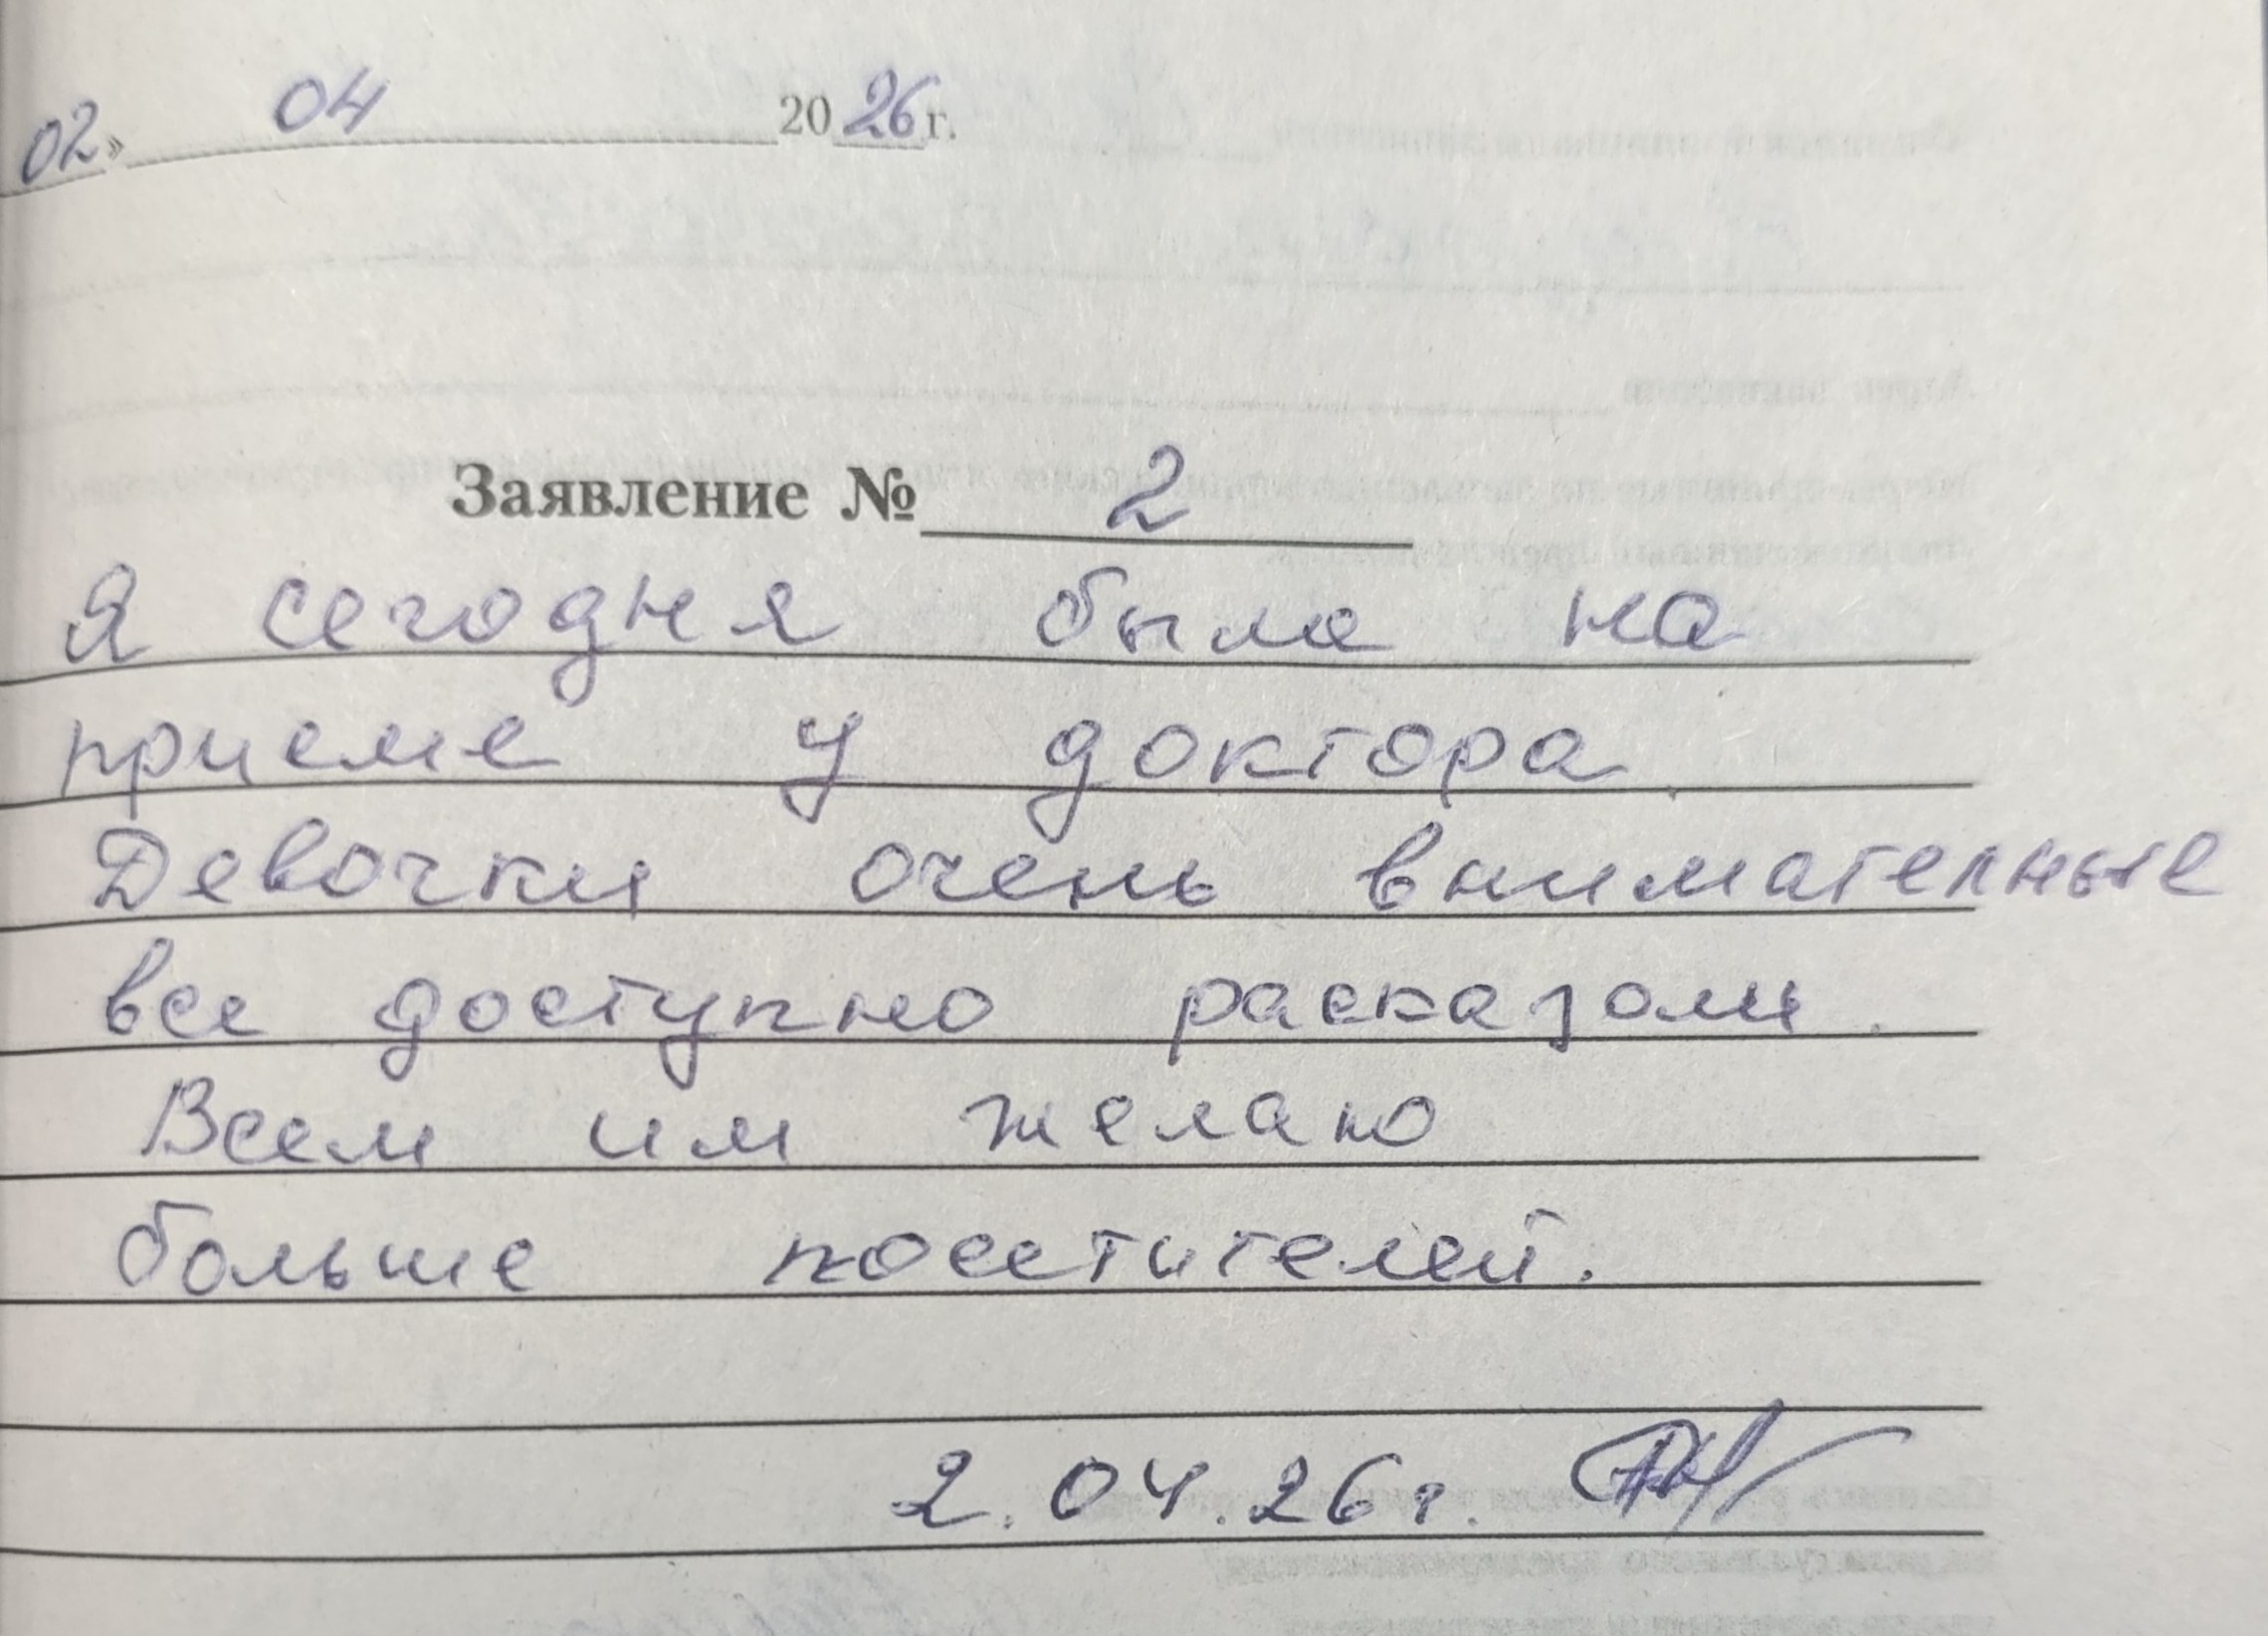 02» 04 2026 г.
Заявление № 2
Я сегодня была на
приеме у доктора.
Девочки очень внимателные
все доступно расказали.
Всем им желаю
больше посетителей.
2.04.26г.